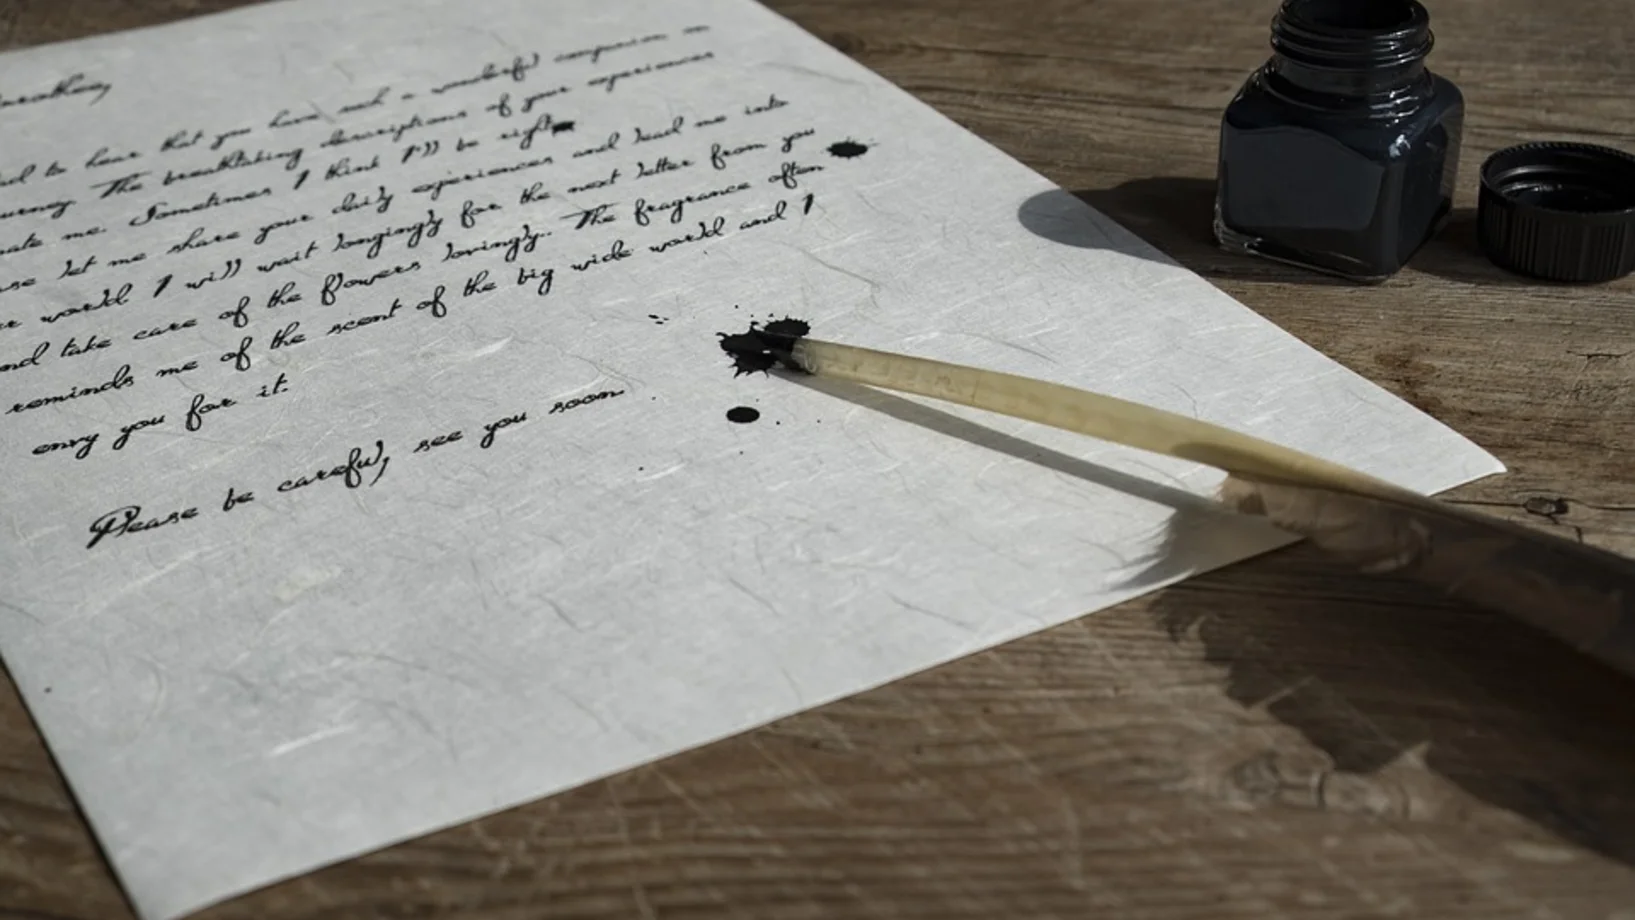 to hear that you have such a wonderful companion on
The breathtaking descriptions of your experiences
me. Sometimes I think I'll be right
let me share your daily experiences and lead me into
world I will wait longingly for the next letter from you
and take care of the flowers lovingly.. The fragrance often
reminds me of the scent of the big wide world and I
envy you for it.
Please be careful, see you soon.